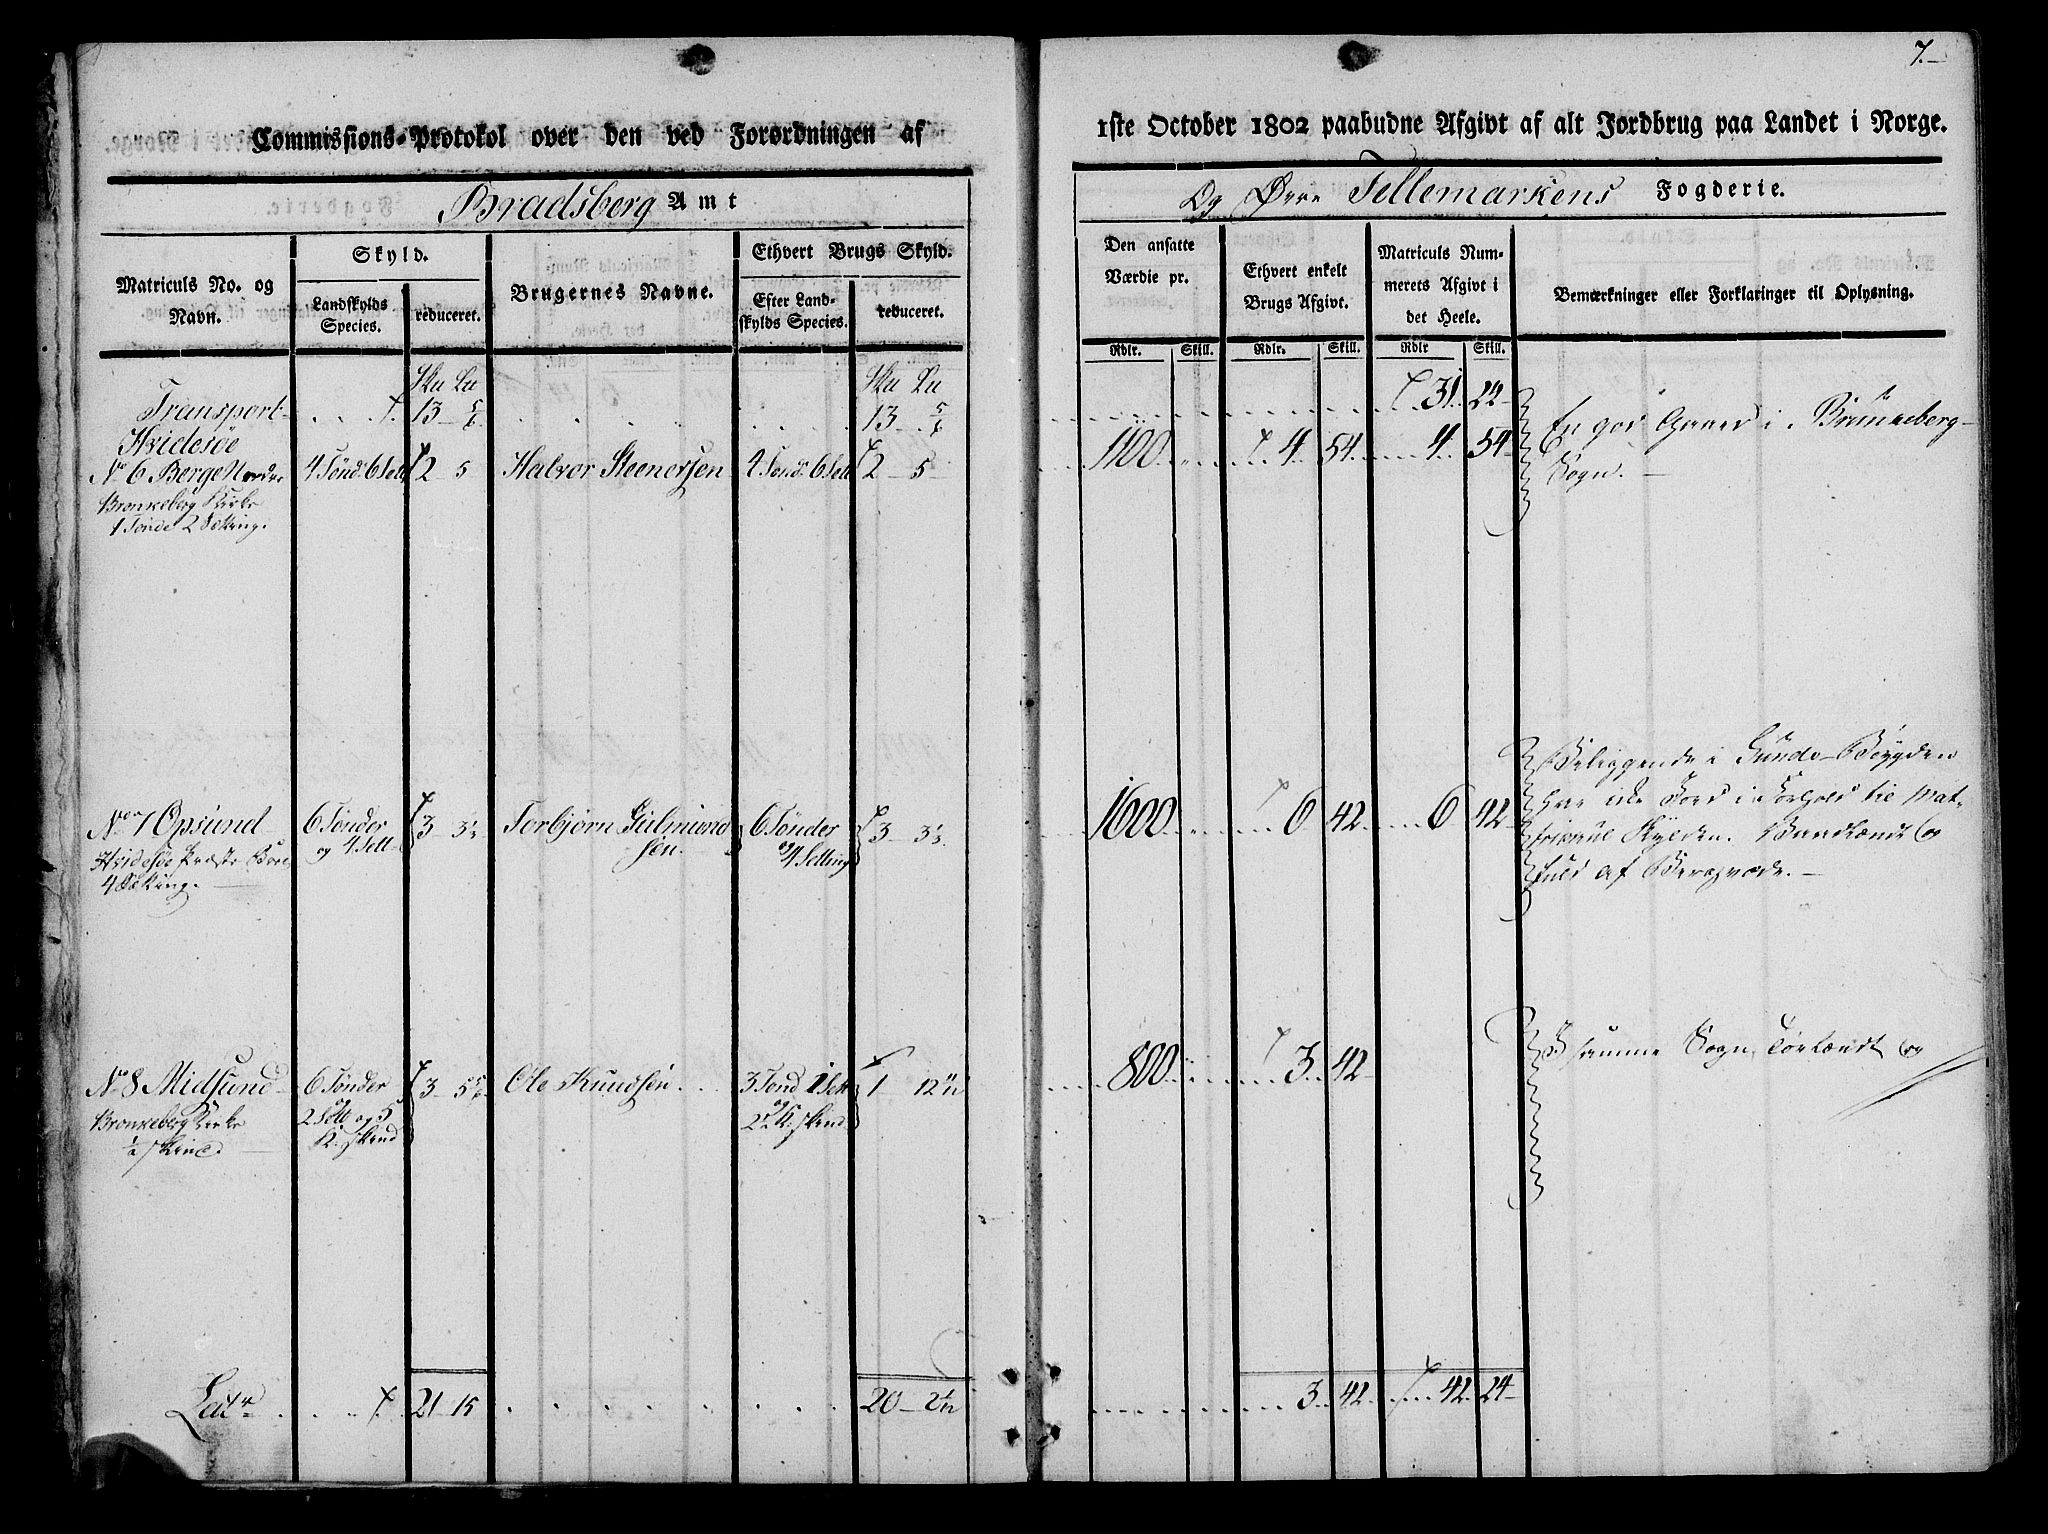 7.
Commissions-Protokol over den ved Forordningen af
1ste October 1802 paabudne Afgivt af alt Jordbrug paa Landet i Norge.
Bradsberg Amt
Og Øvre Tellemarkens Fogderie.
Matriculs No. og Navn.
Skyld.
Landskylds Species.
reduceret.
Brugernes Navne.
Ethvert Brugs Skyld.
Efter Landskylds Species.
reduceret.
Den ansatte Værdie pr.
Ethvert enkelt Brugs Afgivt.
Matriculs Nummerets Afgivt i det Heele.
Bemærkninger eller Forklaringer til Oplysning.
Rdlr. Skill. Rdlr. Skill. Rdlr Skill.
Transport 13 5/6 13 5/6 31 24
Hvidesøe
No 6 Berge Nordre 4 Tønd: 6 Sett 2 5 Halvor Steenersen 4 Tønd: 6 Sett 2 5 1100 4 54 4 54
Bronkeberg Kirke
1 Tønde 2 Setting.
En god Gaard i Brunkeberg
Sogn.
No 7 Opsund 6 Tønder 3 3½ Torbjørn Gulmund 6 Tønder 3 3½ 1600 6 42 6 42
Hvidesøe Præste Boel og 4 Sett sen. og 4 Setting
4 Setting.
Beliggende i Sunde-Bøygden
har ikke Jord i Forhold til Mat-
tricul Skylden. Bradlændt og
fuld af
No 8 Midsund 6 Tønder 3 5 5/6 Ole Knudsen 3 Tønd 1 Sett 1 800 3 42
Bronkeberg Kirke 2 Sett og 5 og
½ skind K: skind 2½ K: skind
I samme Sogn, Tørlændt og
Lat 21 15 20 3 42 42 24